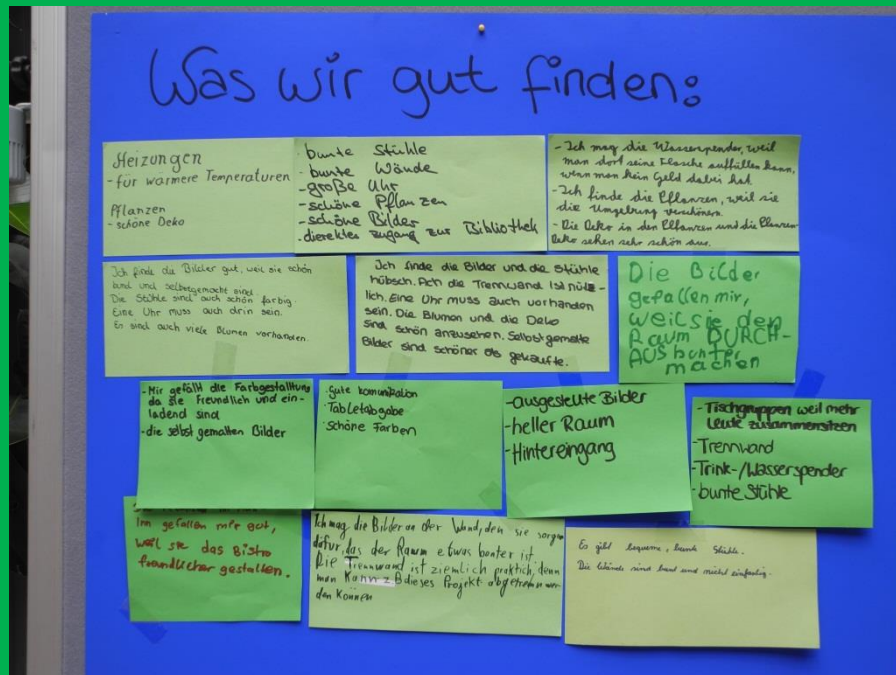 Was wir gut finden:
Heizungen
- für wärmere Temperaturen
Pflanzen
- schöne Deko
- bunte Stühle
- bunte Wände
- große Uhr
- schöne Pflanzen
- schöne Bilder
- direkter zugang zur Bibliothek
- Ich mag die Wasserspender, weil
man dort seine Flasche auffüllen kann,
wenn man kein Geld dabei hat.
- Ich finde die Pflanzen, weil sie
die Umgebung verschönern.
- Die Deko in den Pflanzen und die Pflanzen-
deko sehen sehr schön aus.
Ich finde die Bilder gut, weil sie schön
bunt und selbstgemacht sind.
Die Stühle sind auch schön farbig.
Eine Uhr muss auch drin sein.
Es sind auch viele Blumen vorhanden.
Ich finde die Bilder und die Stühle
hübsch. Ach die Trennwand ist nütz-
lich. Eine Uhr muss auch vorhanden
sein. Die Blumen und die Deko
sind schön anzusehen. Selbstgemalte
Bilder sind schöner als gekaufte.
Die Bilder
gefallen mir,
weil sie den
Raum DURCH-
AUS bunter
machen
- Mir gefällt die Farbgestalltung
da sie Freundlich und ein-
ladend sind
- die selbst gemalten Bilder
- gute komunikation
- Tabletabgabe
- schöne Farben
- ausgestellte Bilder
- heller Raum
- Hintereingang
- Tischgruppen weil mehr
Leute zusammensitzen
- Trennwand
- Trink-/Wasserspender
- bunte Stühle
gefallen mir gut,
weil sie das Bistro
freundlicher gestalten.
Ich mag die Bilder an der Wand, den sie sorgen
dafür, das der Raum etwas bonter ist
Die Trennwand ist ziemlich praktich, denn
man Kann z B dieses Projekt abgetrennt wer-
den Können
Es gibt bequeme, bunte Stühle.
Die Wände sind bunt und nicht einfarbig.